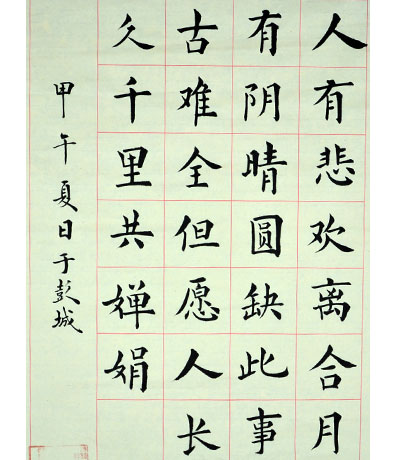 人有悲欢离合月
有阴晴圆缺此事
古难全但愿人长
久千里共婵娟
甲午夏日于彭城